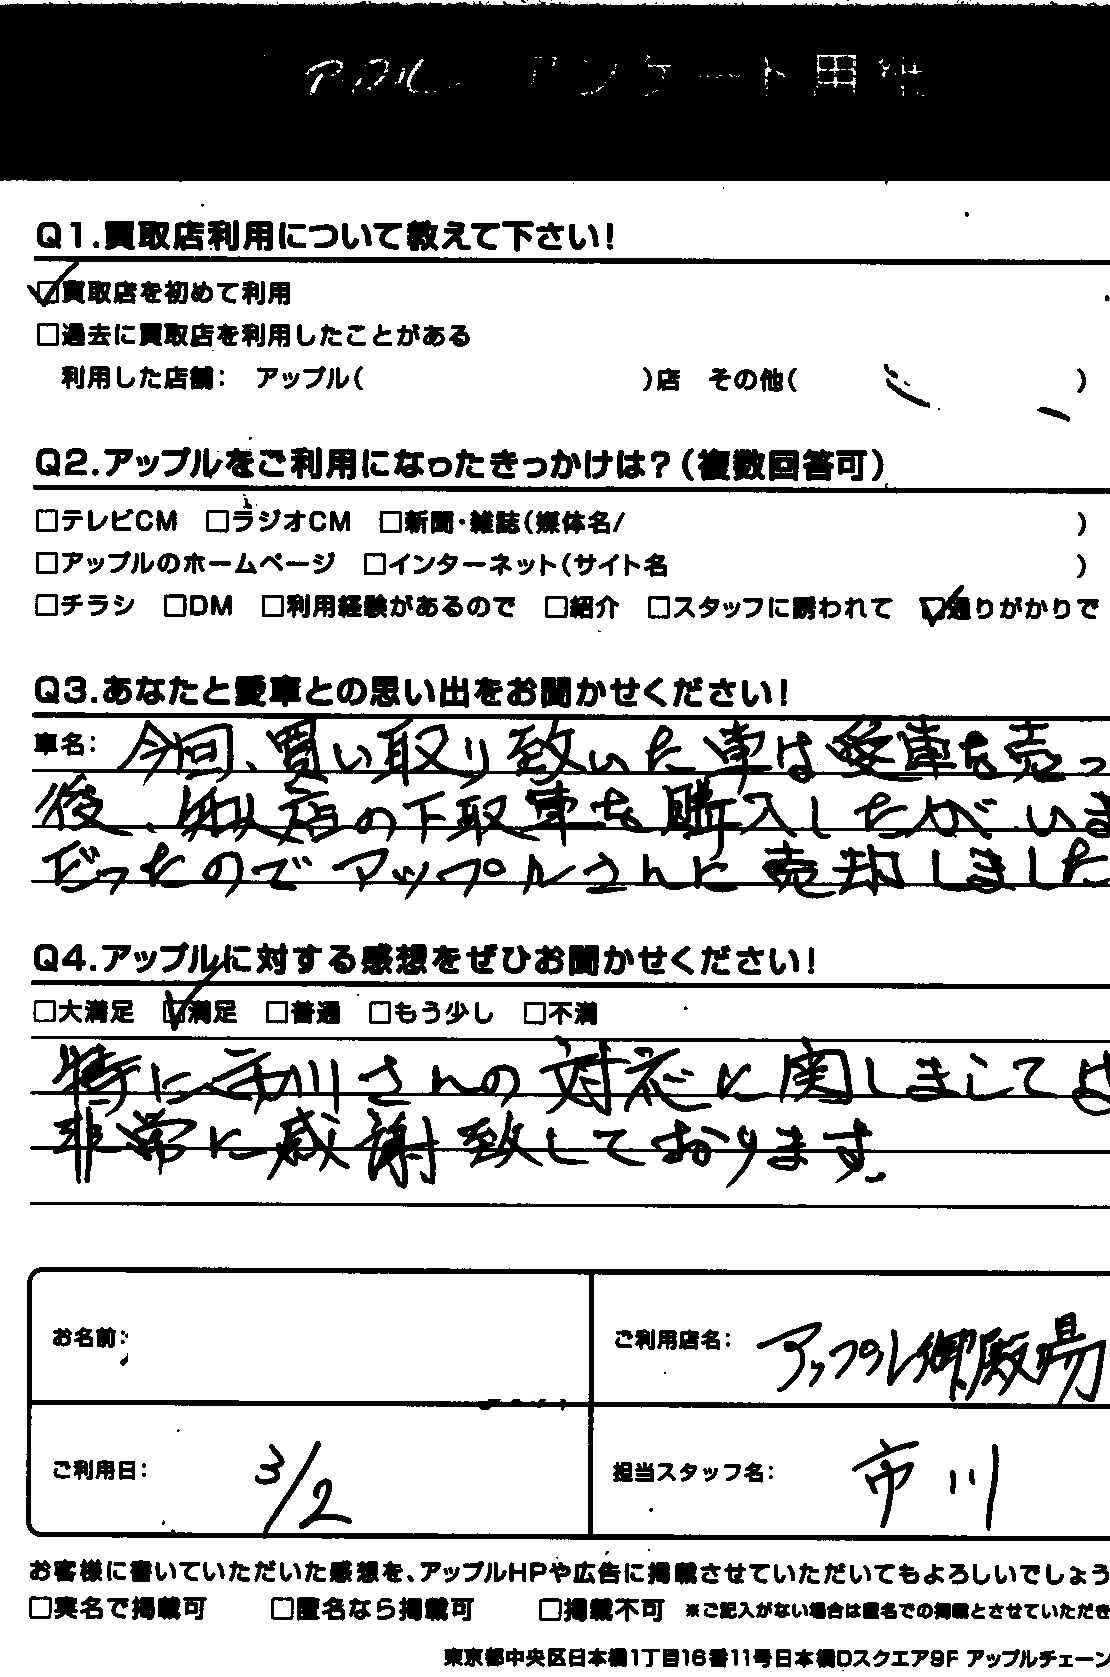 アップル アンケート用紙
Q1.買取店利用について教えて下さい!
☑買取店を初めて利用
□過去に買取店を利用したことがある
利用した店舗: アップル( )店 その他( )
Q2.アップルをご利用になったきっかけは?(複数回答可)
□テレビCM □ラジオCM □新聞・雑誌(媒体名/ )
□アップルのホームページ □インターネット(サイト名 )
□チラシ □DM □利用経験があるので □紹介 □スタッフに誘われて ☑通りがかりで
Q3.あなたと愛車との思い出をお聞かせください!
車名: 今回、買い取り致いた車は愛車を売っ
後、知人店の下取車を購入したが いま
だったのでアップルさんに売却しました
Q4.アップルに対する感想をぜひお聞かせください!
□大満足 ☑満足 □普通 □もう少し □不満
特に市川さんの対応に関しましてよ
非常に感謝致しております.
お名前:
ご利用店名: アップル御殿場
ご利用日: 3/2
担当スタッフ名: 市川
お客様に書いていただいた感想を、アップルHPや広告に掲載させていただいてもよろしいでしょう
□実名で掲載可 □匿名なら掲載可 □掲載不可 ※ご記入がない場合は匿名での掲載とさせていただき
東京都中央区日本橋1丁目16番11号日本橋Dスクエア9F アップルチェーン